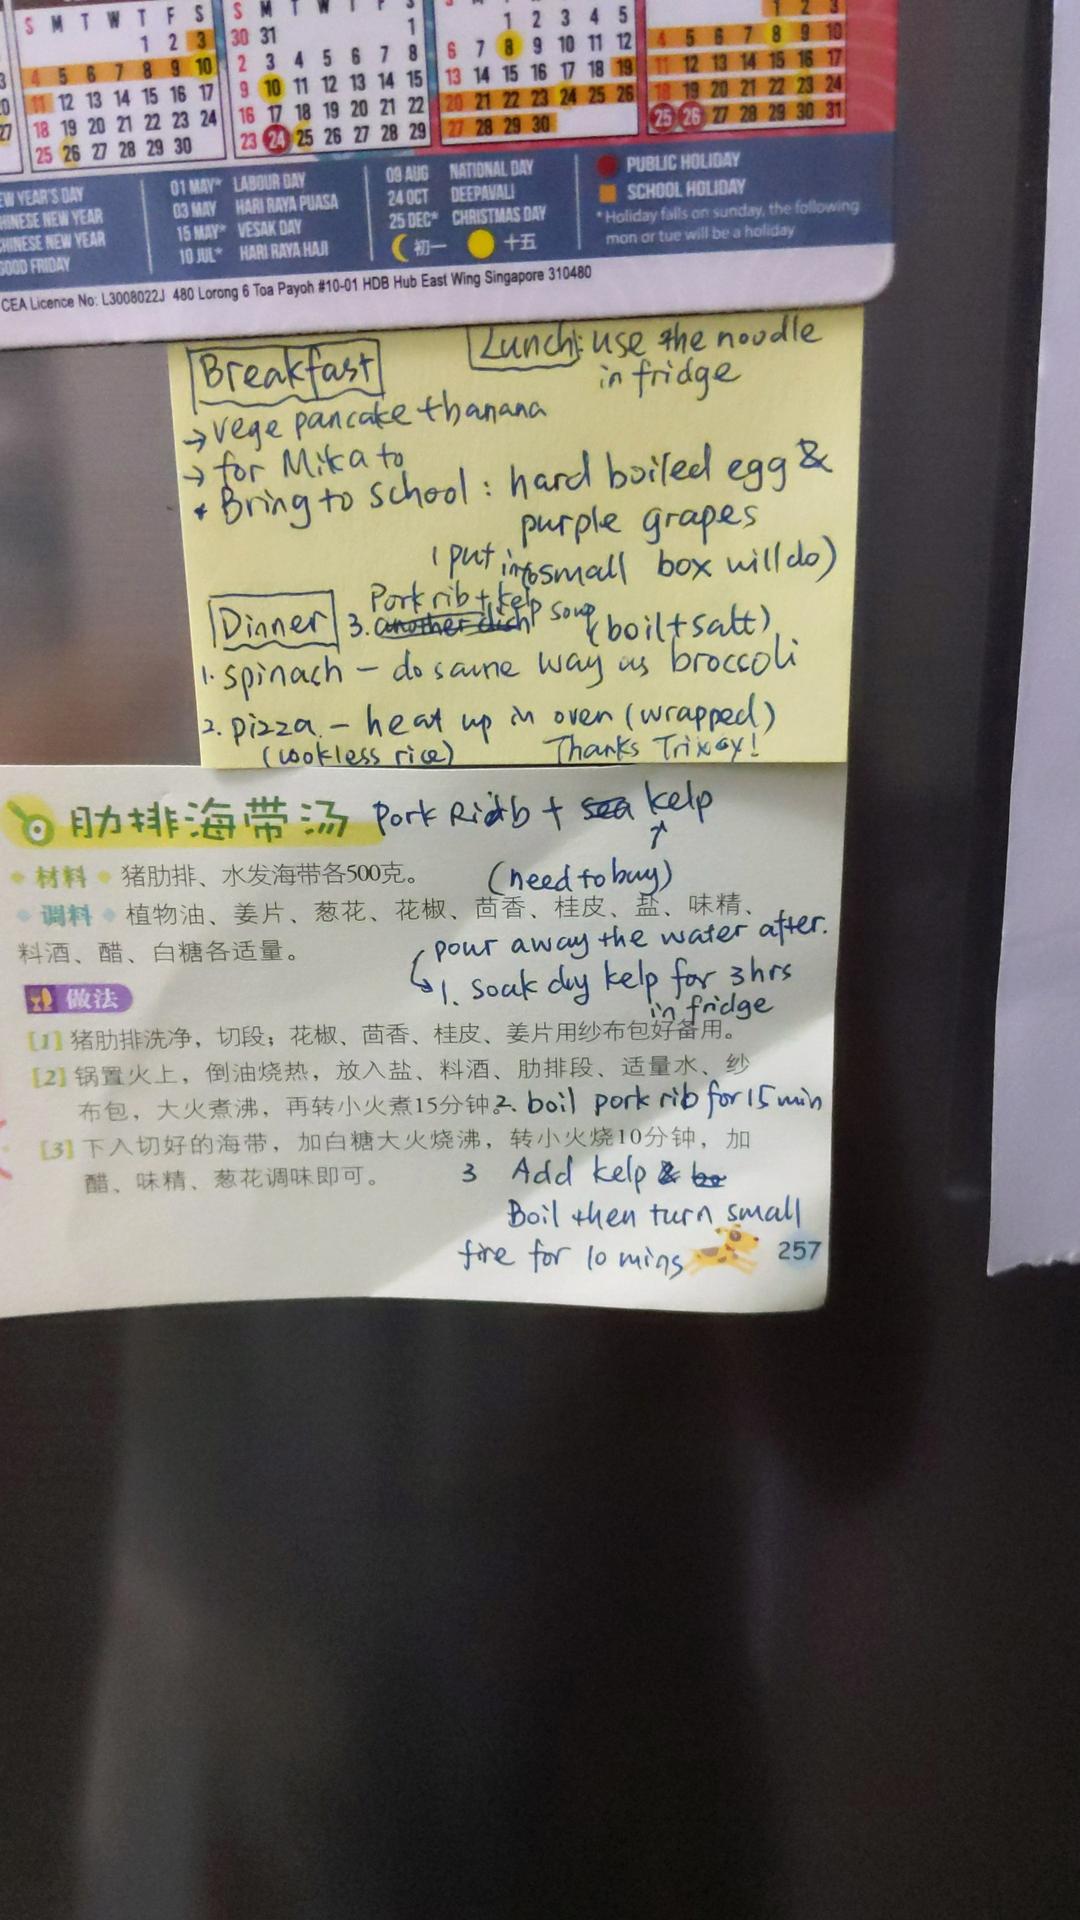 S M T W T F S
1 2 3
4 5 6 7 8 9 10
11 12 13 14 15 16 17
18 19 20 21 22 23 24
25 26 27 28 29 30
S M T W T F S
30 31 1
2 3 4 5 6 7 8
9 10 11 12 13 14 15
16 17 18 19 20 21 22
23 24 25 26 27 28 29
1 2 3 4 5
6 7 8 9 10 11 12
13 14 15 16 17 18 19
20 21 22 23 24 25 26
27 28 29 30
1 2 3
4 5 6 7 8 9 10
11 12 13 14 15 16 17
18 19 20 21 22 23 24
25 26 27 28 29 30 31
EW YEAR'S DAY
HINESE NEW YEAR
HINESE NEW YEAR
GOOD FRIDAY
01 MAY* LABOUR DAY
03 MAY HARI RAYA PUASA
15 MAY* VESAK DAY
10 JUL* HARI RAYA HAJI
09 AUG NATIONAL DAY
24 OCT DEEPAVALI
25 DEC* CHRISTMAS DAY
初一 十五
PUBLIC HOLIDAY
SCHOOL HOLIDAY
*Holiday falls on sunday, the following
mon or tue will be a holiday
CEA Licence No: L3008022J 480 Lorong 6 Toa Payoh #10-01 HDB Hub East Wing Singapore 310480
Breakfast
Lunch: use the noodle
in fridge
→ vege pancake + banana
→ for Mika to
* Bring to school: hard boiled egg &
purple grapes
(put into small box will do)
Dinner
Pork rib + kelp soup
3. another dish (boil + salt)
1. spinach - do same way as broccoli
2. pizza - heat up in oven (wrapped)
(cook less rice) Thanks Trixxy!
肋排海带汤 Pork Rib + sea kelp
材料 猪肋排、水发海带各500克。
(need to buy)
调料 植物油、姜片、葱花、花椒、茴香、桂皮、盐、味精、
料酒、醋、白糖各适量。
pour away the water after.
1. soak dry kelp for 3 hrs
in fridge
做法
[1] 猪肋排洗净，切段；花椒、茴香、桂皮、姜片用纱布包好备用。
[2] 锅置火上，倒油烧热，放入盐、料酒、肋排段、适量水、纱
布包，大火煮沸，再转小火煮15分钟。
2. boil pork rib for 15 min
[3] 下入切好的海带，加白糖大火烧沸，转小火烧10分钟，加
醋、味精、葱花调味即可。
3 Add kelp &
Boil then turn small
fire for 10 mins
257